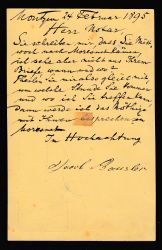 24 Februar 1895
Herr Notar.
Sie schreiben mir, dass Sie Mitt-
woch nach kommen
ich sehe aber nicht aus Ihrem
Briefe wann und wo?
Theilen Sie mir also gleich mit,
um welche Stunde Sie kommen
und wo ich Sie treffen kann,
dann werde ich das Nöthige
mit Ihnen besprechen in
In Hochachtung
Jacob